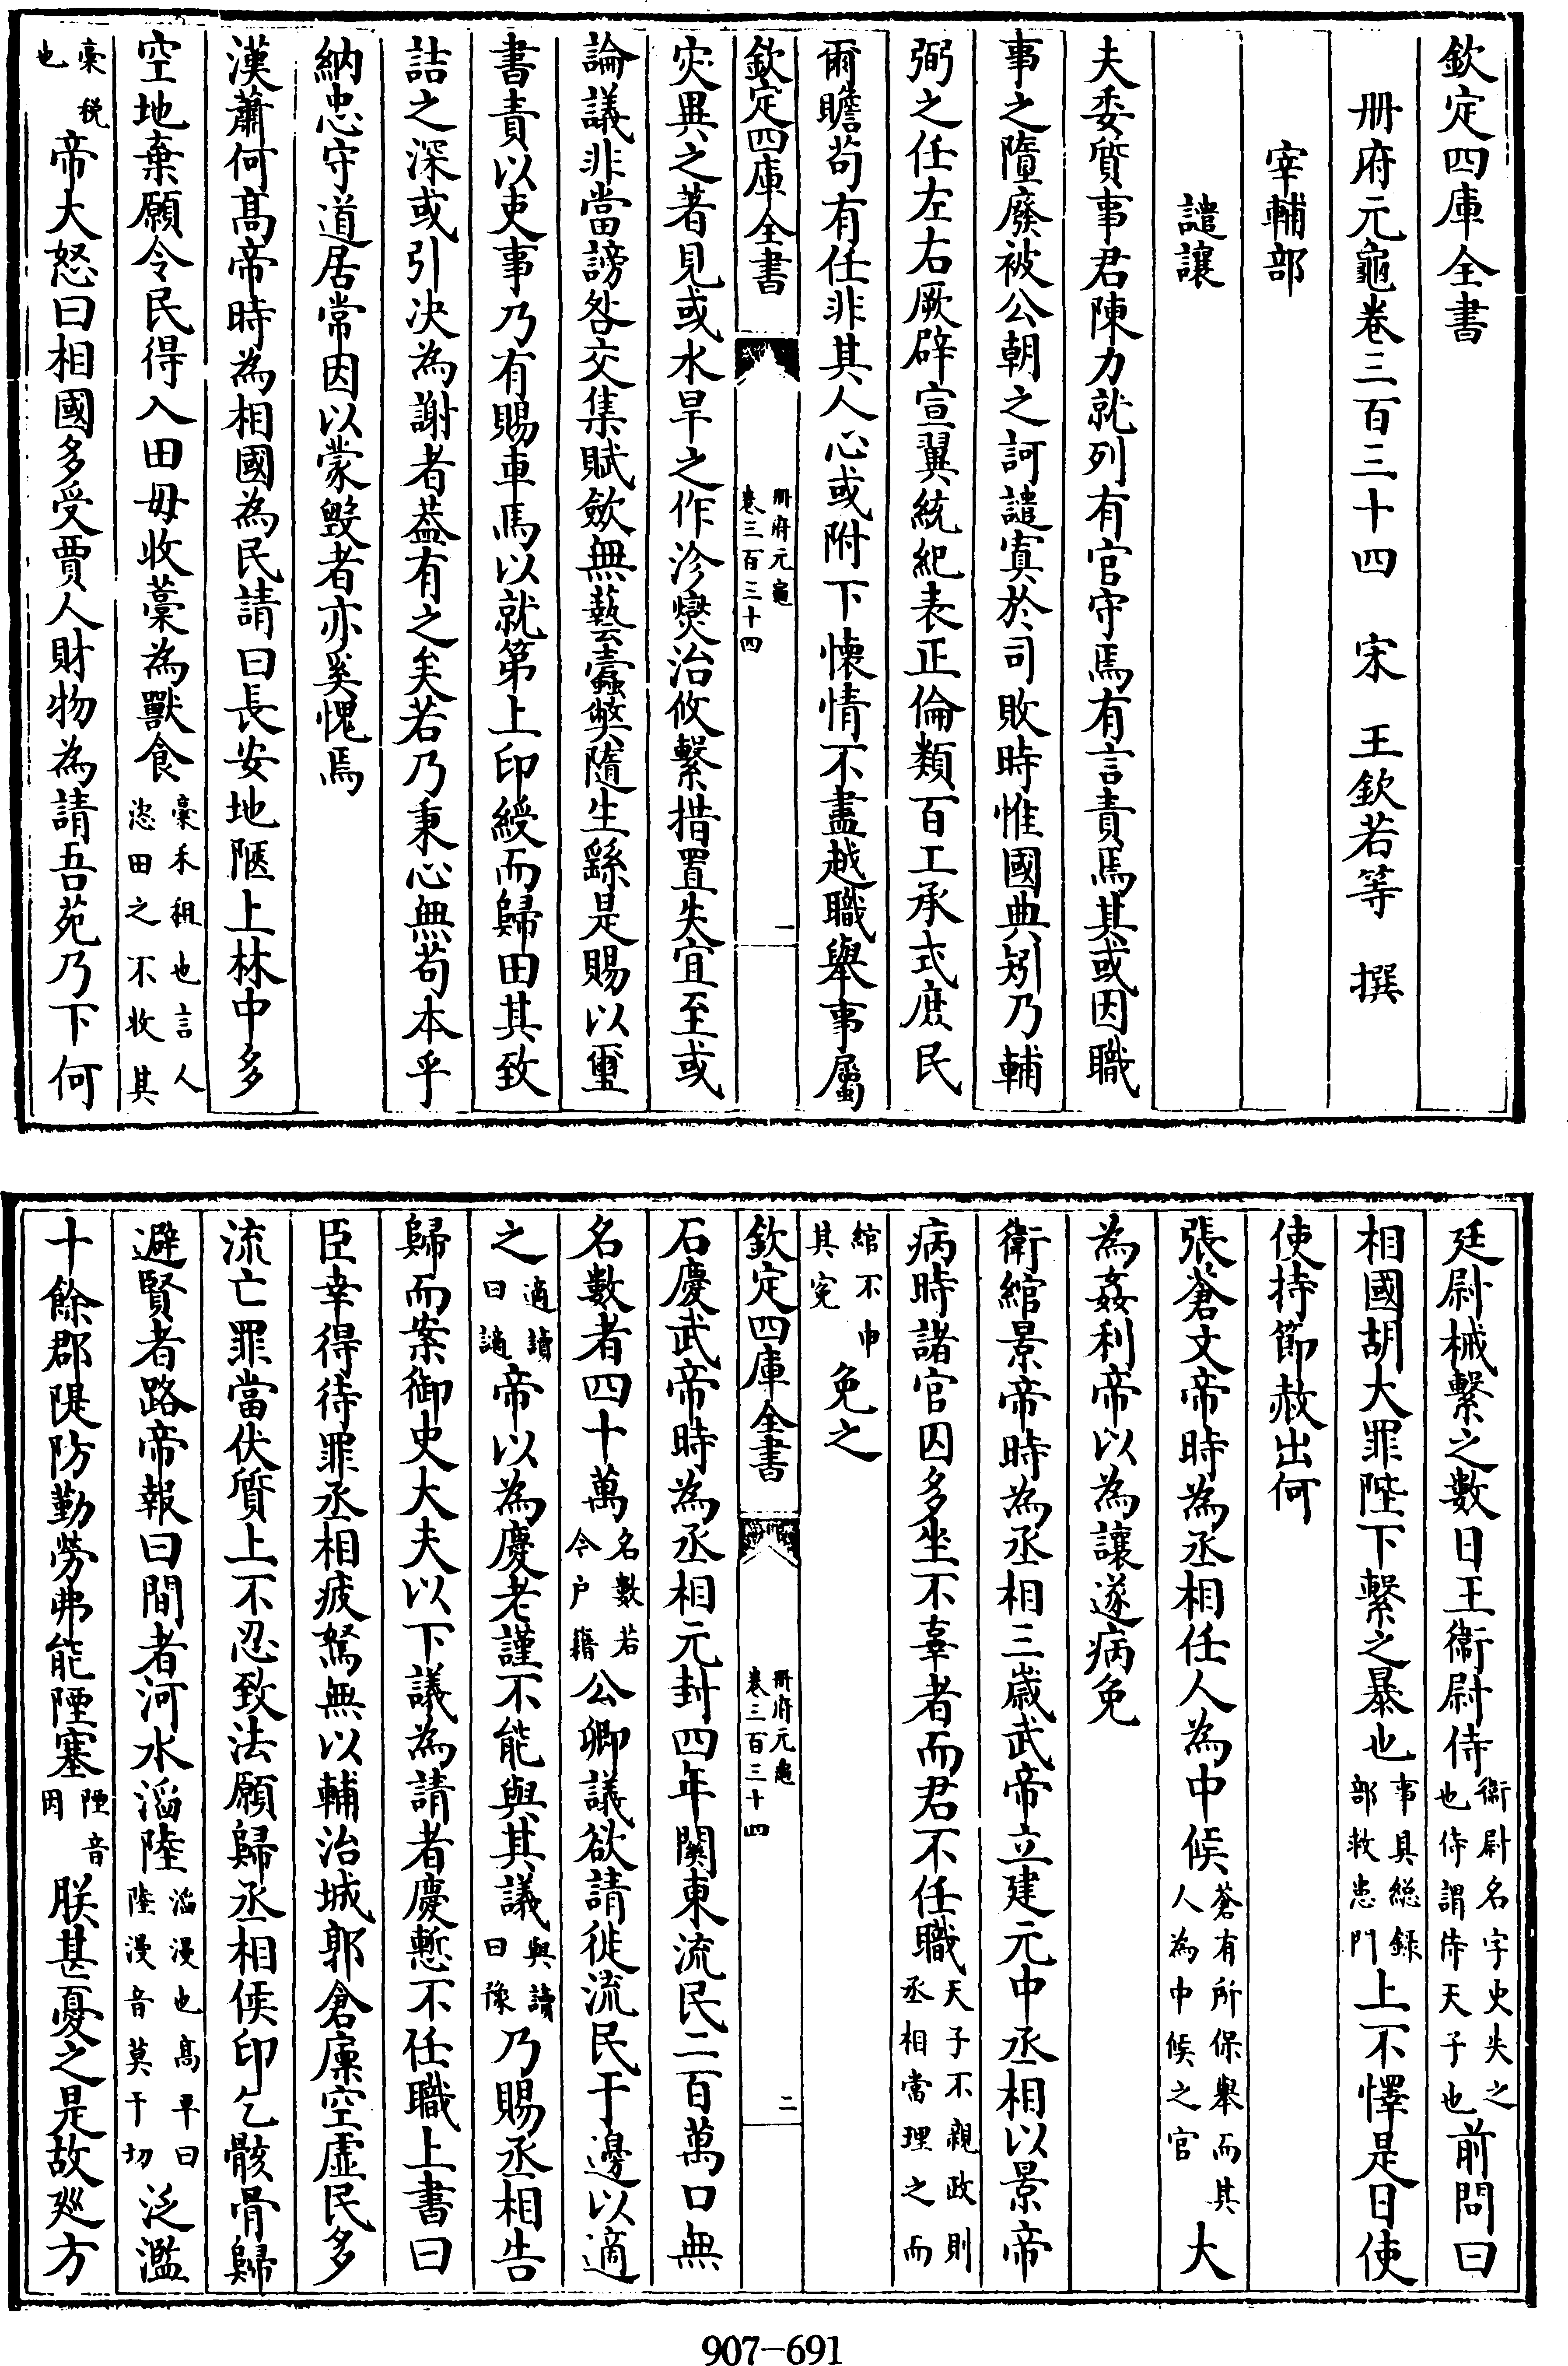 欽定四庫全書
冊府元龜卷三百三十四　宋　王欽若等　撰
宰輔部
譴讓
夫委質事君陳力就列有官守焉有言責焉其或因職
事之隳廢被公朝之訶譴寘於司敗時惟國典矧乃輔
弼之任左右厥辟宣翼統紀表正倫類百工承式庶民
爾瞻苟有任非其人心或附下懷情不盡越職舉事屬
欽定四庫全書
冊府元龜
卷三百三十四
一
灾異之著見或水旱之作沴爕治攸繫措置失宜至或
論議非當謗咎交集賦斂無藝蠧弊隨生繇是賜以璽
書責以吏事乃有賜車馬以就第上印綬而歸田其致
詰之深或引决為謝者葢有之矣若乃秉心無苟本乎
納忠守道居常因以蒙毀者亦奚愧焉
漢蕭何高帝時為相國為民請曰長安地陿上林中多
空地棄願令民得入田毋收藁為獸食藁禾租也言人
恣田之不收其
藁稅
也帝大怒曰相國多受賈人財物為請吾苑乃下何
廷尉械繫之數日王衛尉侍衛尉名字史失之
也侍謂侍天子也前問曰
相國胡大罪陛下繫之暴也事具總錄
部救患門上不懌是日使
使持節赦出何
張蒼文帝時為丞相任人為中候蒼有所保舉而其
人為中候之官大
為姦利帝以為讓遂病免
衛綰景帝時為丞相三歲武帝立建元中丞相以景帝
病時諸官囚多坐不辜者而君不任職天子不親政則
丞相當理之而
綰不申
其寃免之
欽定四庫全書
冊府元龜
卷三百三十四
二
石慶武帝時為丞相元封四年關東流民二百萬口無
名數者四十萬名數若
今户籍公卿議欲請徙流民于邊以適
之適讀
曰讁帝以為慶老謹不能與其議與讀
曰豫乃賜丞相告
歸而案御史大夫以下議為請者慶慙不任職上書曰
臣幸得待罪丞相疲駑無以輔治城郭倉廩空虛民多
流亡罪當伏質上不忍致法願歸丞相侯印乞骸骨歸
避賢者路帝報曰間者河水滔陸滔漫也高平曰
陸漫音莫干切泛濫
十餘郡隄防勤勞弗能陻塞陻音
因朕甚憂之是故廵方
907-691